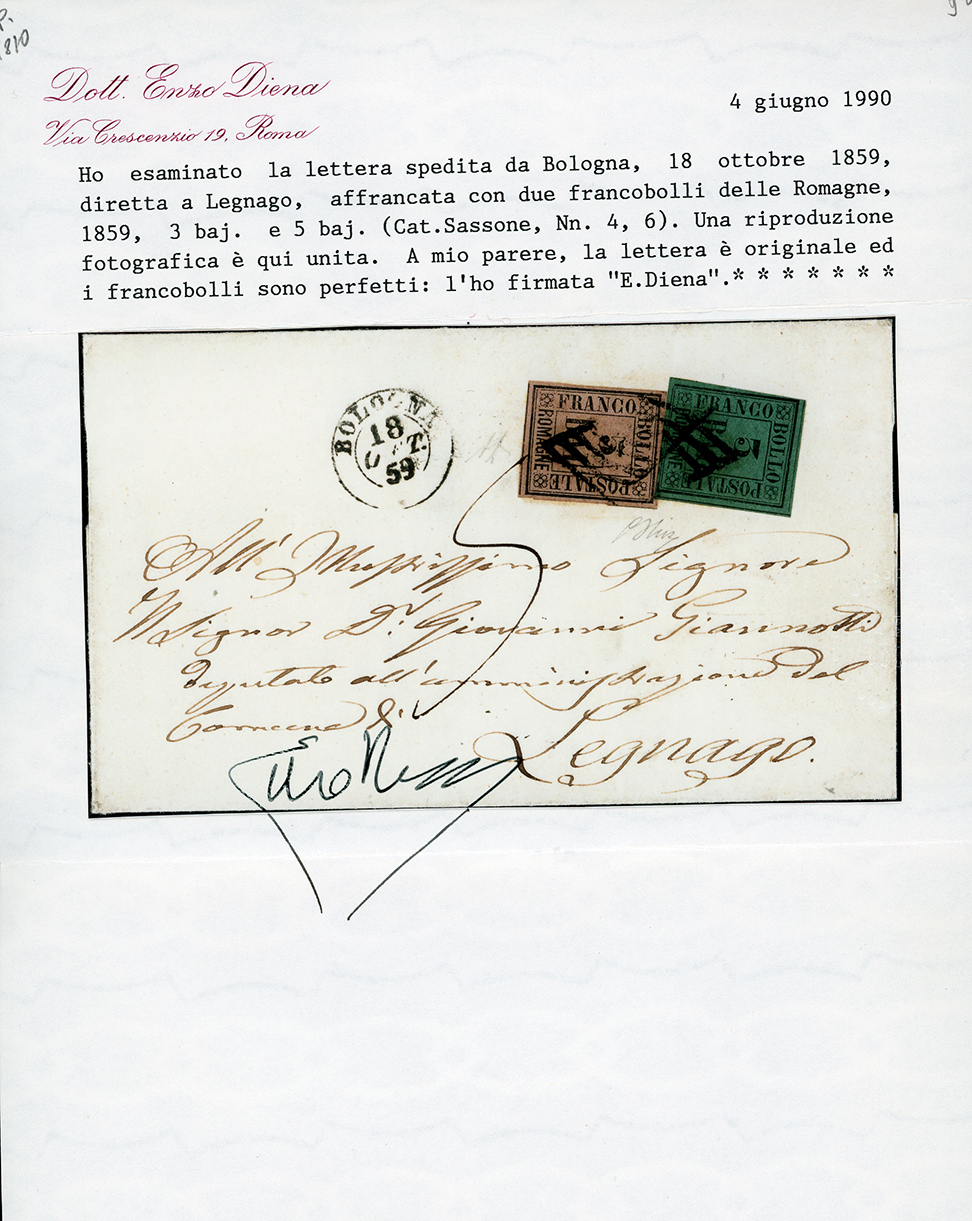 810
Dott. Enzo Diena
Via Crescenzio 19, Roma
4 giugno 1990
Ho esaminato la lettera spedita da Bologna, 18 ottobre 1859,
diretta a Legnago, affrancata con due francobolli delle Romagne,
1859, 3 baj. e 5 baj. (Cat.Sassone, Nn. 4, 6). Una riproduzione
fotografica è qui unita. A mio parere, la lettera è originale ed
i francobolli sono perfetti: l'ho firmata "E.Diena".* * * * * * *
BOLOGNA
18
OTT.
59
FRANCO
BOLLO
POSTALE
ROMAGNE
3
FRANCO
BOLLO
POSTALE
5
All' Illustrissimo Signore
Il Signor Dr. Giovanni Giannotti
deputato all'amministrazione del
Comune di
Legnago.